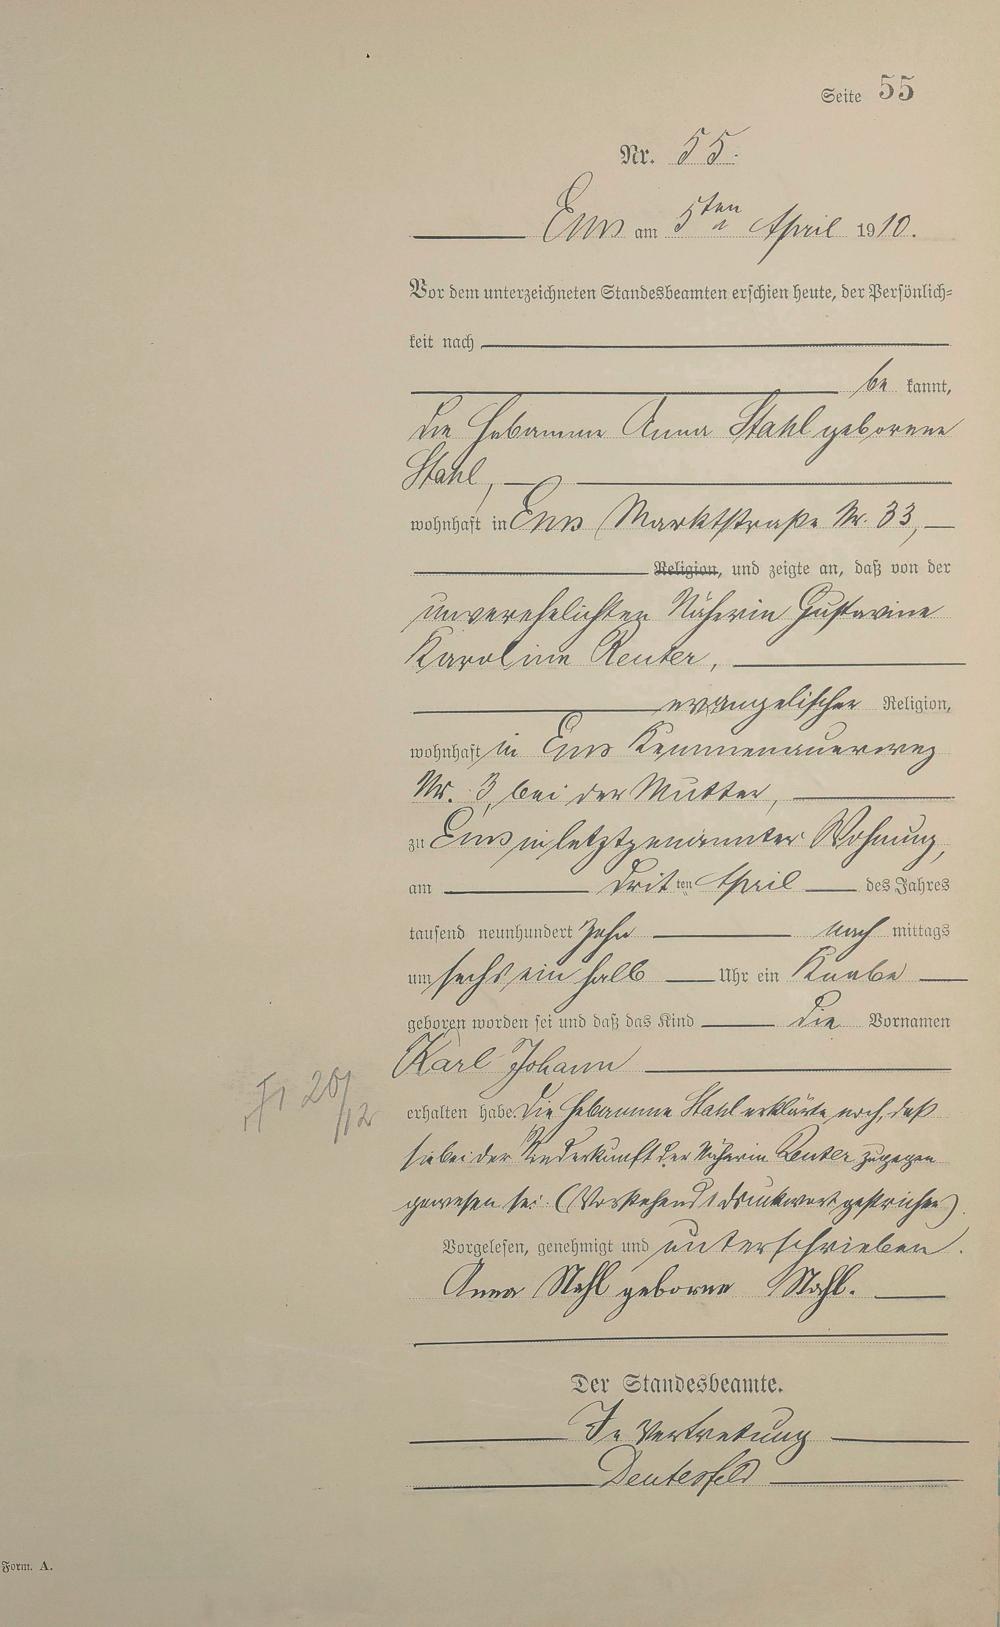 Seite 55
Nr. 55.
Ems am 5ten April 1910.
Vor dem unterzeichneten Standesbeamten erschien heute, der Persönlich-
keit nach
be kannt,
die Hebamme Anna Stahl geborene
Stahl,
wohnhaft in Ems Marktstraße Nr. 33,
Religion, und zeigte an, daß von der
unverehelichten Näherin Gustavine
Karoline Reuter,
evangelischer Religion,
wohnhaft in Ems Kemmenauerweg
Nr. 3, bei der Mutter,
zu Ems in letztgenannter Wohnung,
am dritten April des Jahres
tausend neunhundert zehn nach mittags
um sechs ein halb Uhr ein Knabe
geboren worden sei und daß das Kind die Vornamen
Karl Johann
erhalten habe. Die Hebamme Stahl erklärte noch, daß
sie bei der Niederkunft der Näherin Reuter zugegen
gewesen sei. (Vorstehend 1 Druckwort gestrichen).
Vorgelesen, genehmigt und unterschrieben.
Anna Stahl geborne Stahl.
Der Standesbeamte.
In Vertretung
20/12
Form. A.